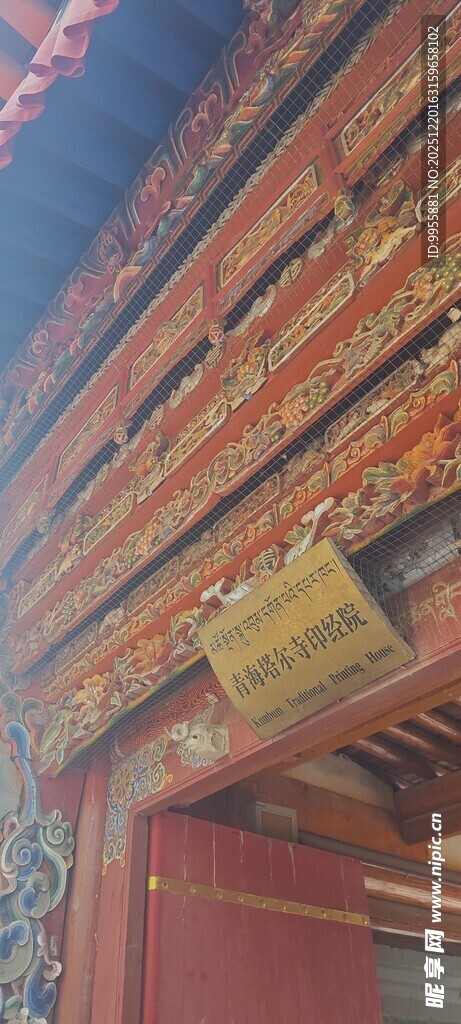 青海塔尔寺印经院
Kumbum Traditional Printing House
ID:9955881 NO:20251220163159658102
昵享网 www.nipic.cn